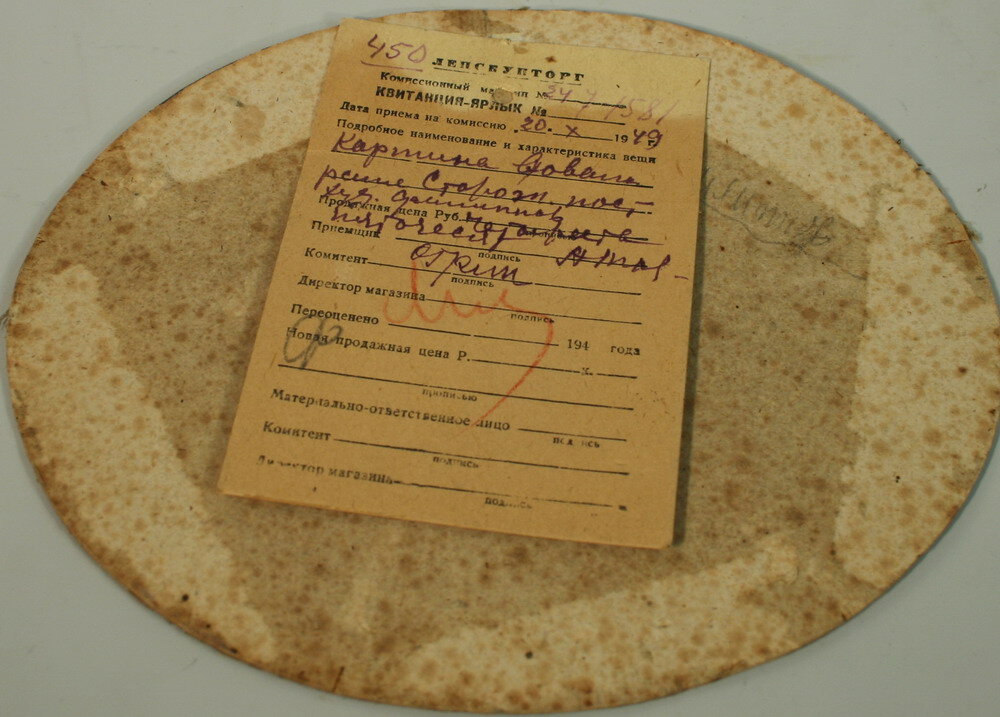 450 ЛЕНСКУПТОРГ
Комиссионный магазин № 24
КВИТАНЦИЯ-ЯРЛЫК № 7/1581
Дата приема на комиссию 20. X 1949 г.
Подробное наименование и характеристика вещи
Картина Овальн
рение Сторож. пост
худ. Филиппов
Продажная цена Руб. Четыреста
пятьдесят
прописью
Приемщик
подпись
Комитент
подпись
Директор магазина
подпись
Переоценено 194 года
Новая продажная цена Р. к.
прописью
Материально-ответственное лицо
подпись
Комитент
подпись
Директор магазина
подпись